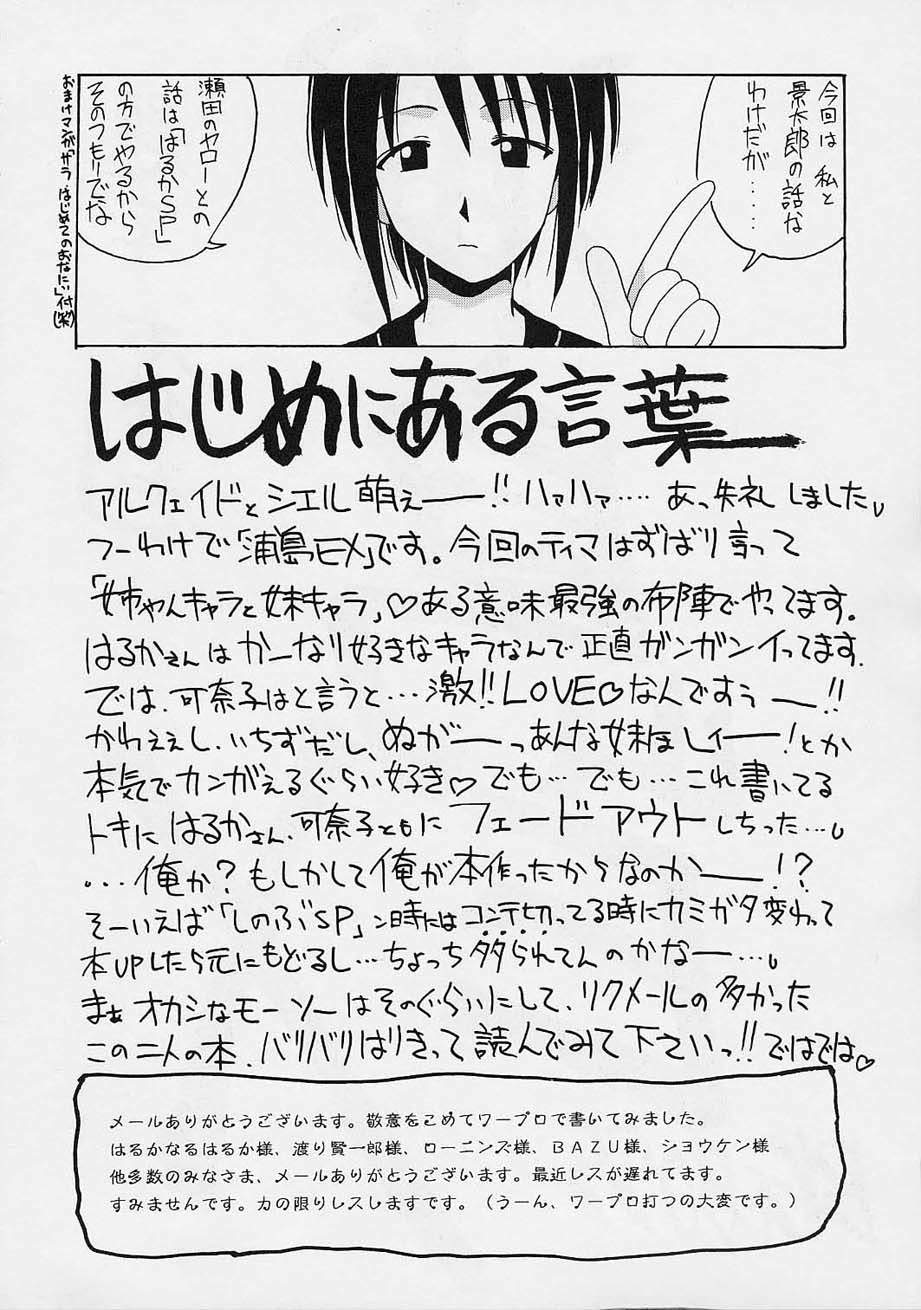 今回は 私と
景太郎の話な
わけだが・・・・
瀬田のヤローとの
話は「はるかSP」
の方でやるから
そのつもりでな
おまけマンガ「カラ はじめてのおなにい」付(笑)
はじめにある言葉
アルクェイドとシエル萌えー!! ハァハァ…. あっ失礼しました
つーわけで「浦島EX」です。今回のティマはずばり言って
「姉ちゃんキャラと妹キャラ」♡ある意味最強の布陣でやってます。
はるかさんは かーなり好きなキャラなんで 正直ガンガンイってます.
では、可奈子はと言うと…激!!LOVE♡なんですぅー!!
かわええし、いちずだし、ぬがーっあんな妹ほしィー!とか
本気でカンがえるぐらい好き♡でも…でも…これ書いてる
トキに はるかさん、可奈子ともに フェードアウトしちった…。
...俺か?もしかして俺が本作ったからなのかー!?
そーいえば「しのぶSP」ン時にはコンテ切ってる時にカミガタ変わって
本UPしたら元にもどるし…ちょっち タタられてんのかなー…。
まぁ オカシなモーソーはそのぐらいにして、リクメールの多かった
この二人の本、バリバリはりきって 読んでみて下さいっ!!ではでは♡
メールありがとうございます。敬意をこめてワープロで書いてみました。
はるかなるはるか様、渡り賢一郎様、ローニンズ様、BAZU様、ショウケン様
他多数のみなさま、メールありがとうございます。最近レスが遅れてます。
すみませんです。力の限りレスしますです。(うーん、ワープロ打つの大変です。)